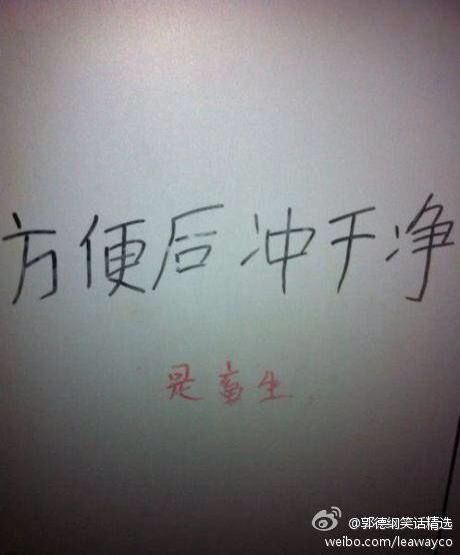 方便后冲干净
是畜生
@郭德纲笑话精选
weibo.com/leawayco